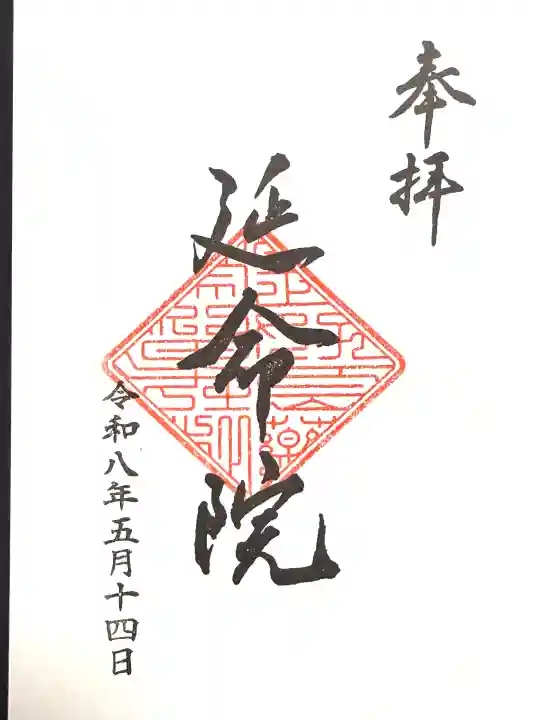 奉拝
延命院
令和八年五月十四日